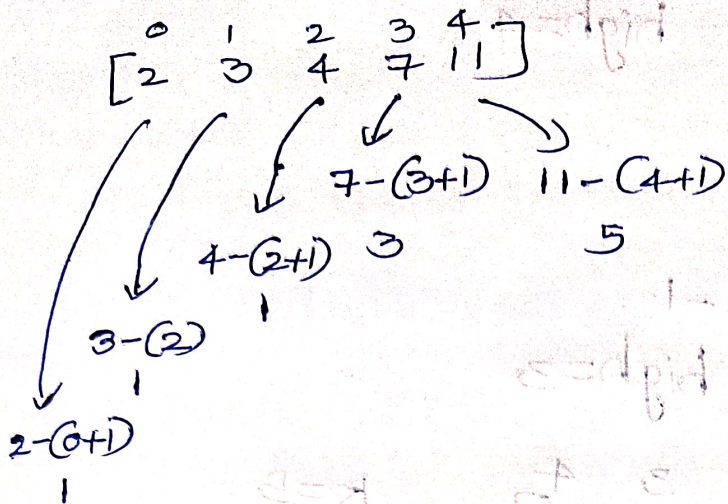 0 1 2 3 4
[2 3 4 7 11]
7-(3+1) 11-(4+1)
3 5
4-(2+1)
1
3-(2)
1
2-(0+1)
1